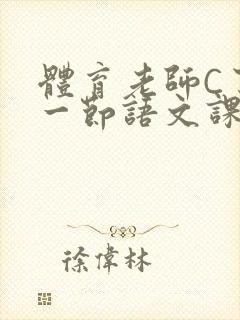 體育老師C
一節語文課
徐偉林